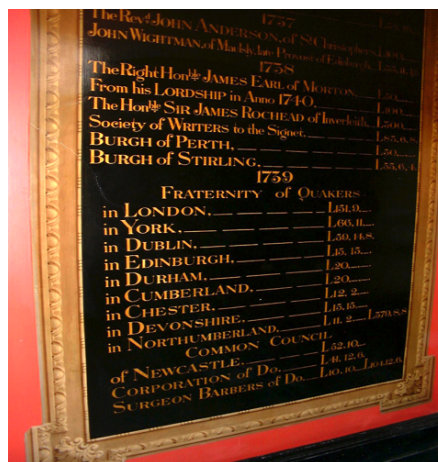 1737
The Revd. JOHN ANDERSON, of St. Christophers,
JOHN WIGHTMAN, of Maulsly, late Provost of Edinburgh,
1738
The Right Honble JAMES EARL of MORTON, L50
From his LORDSHIP in Anno 1740, L100
The Honble SIR JAMES ROCHEAD of Inverleith, L500
Society of WRITERS to the Signet L85,6,8
BURGH of PERTH, L50
BURGH of STIRLING, L55,6,4
1739
FRATERNITY of QUAKERS
in LONDON, L151,9
in YORK, L66,11
in DUBLIN, L59,14,8
in EDINBURGH, L15,15
in DURHAM, L20
in CUMBERLAND, L20
in CHESTER, L12,2
in DEVONSHIRE, L15,15
in NORTHUMBERLAND, L11,2 L379,8,8
COMMON COUNCIL
of NEWCASTLE, L52,10
CORPORATION of Do. L41,12,6
SURGEON BARBERS of Do. L10,10 L104,12,6